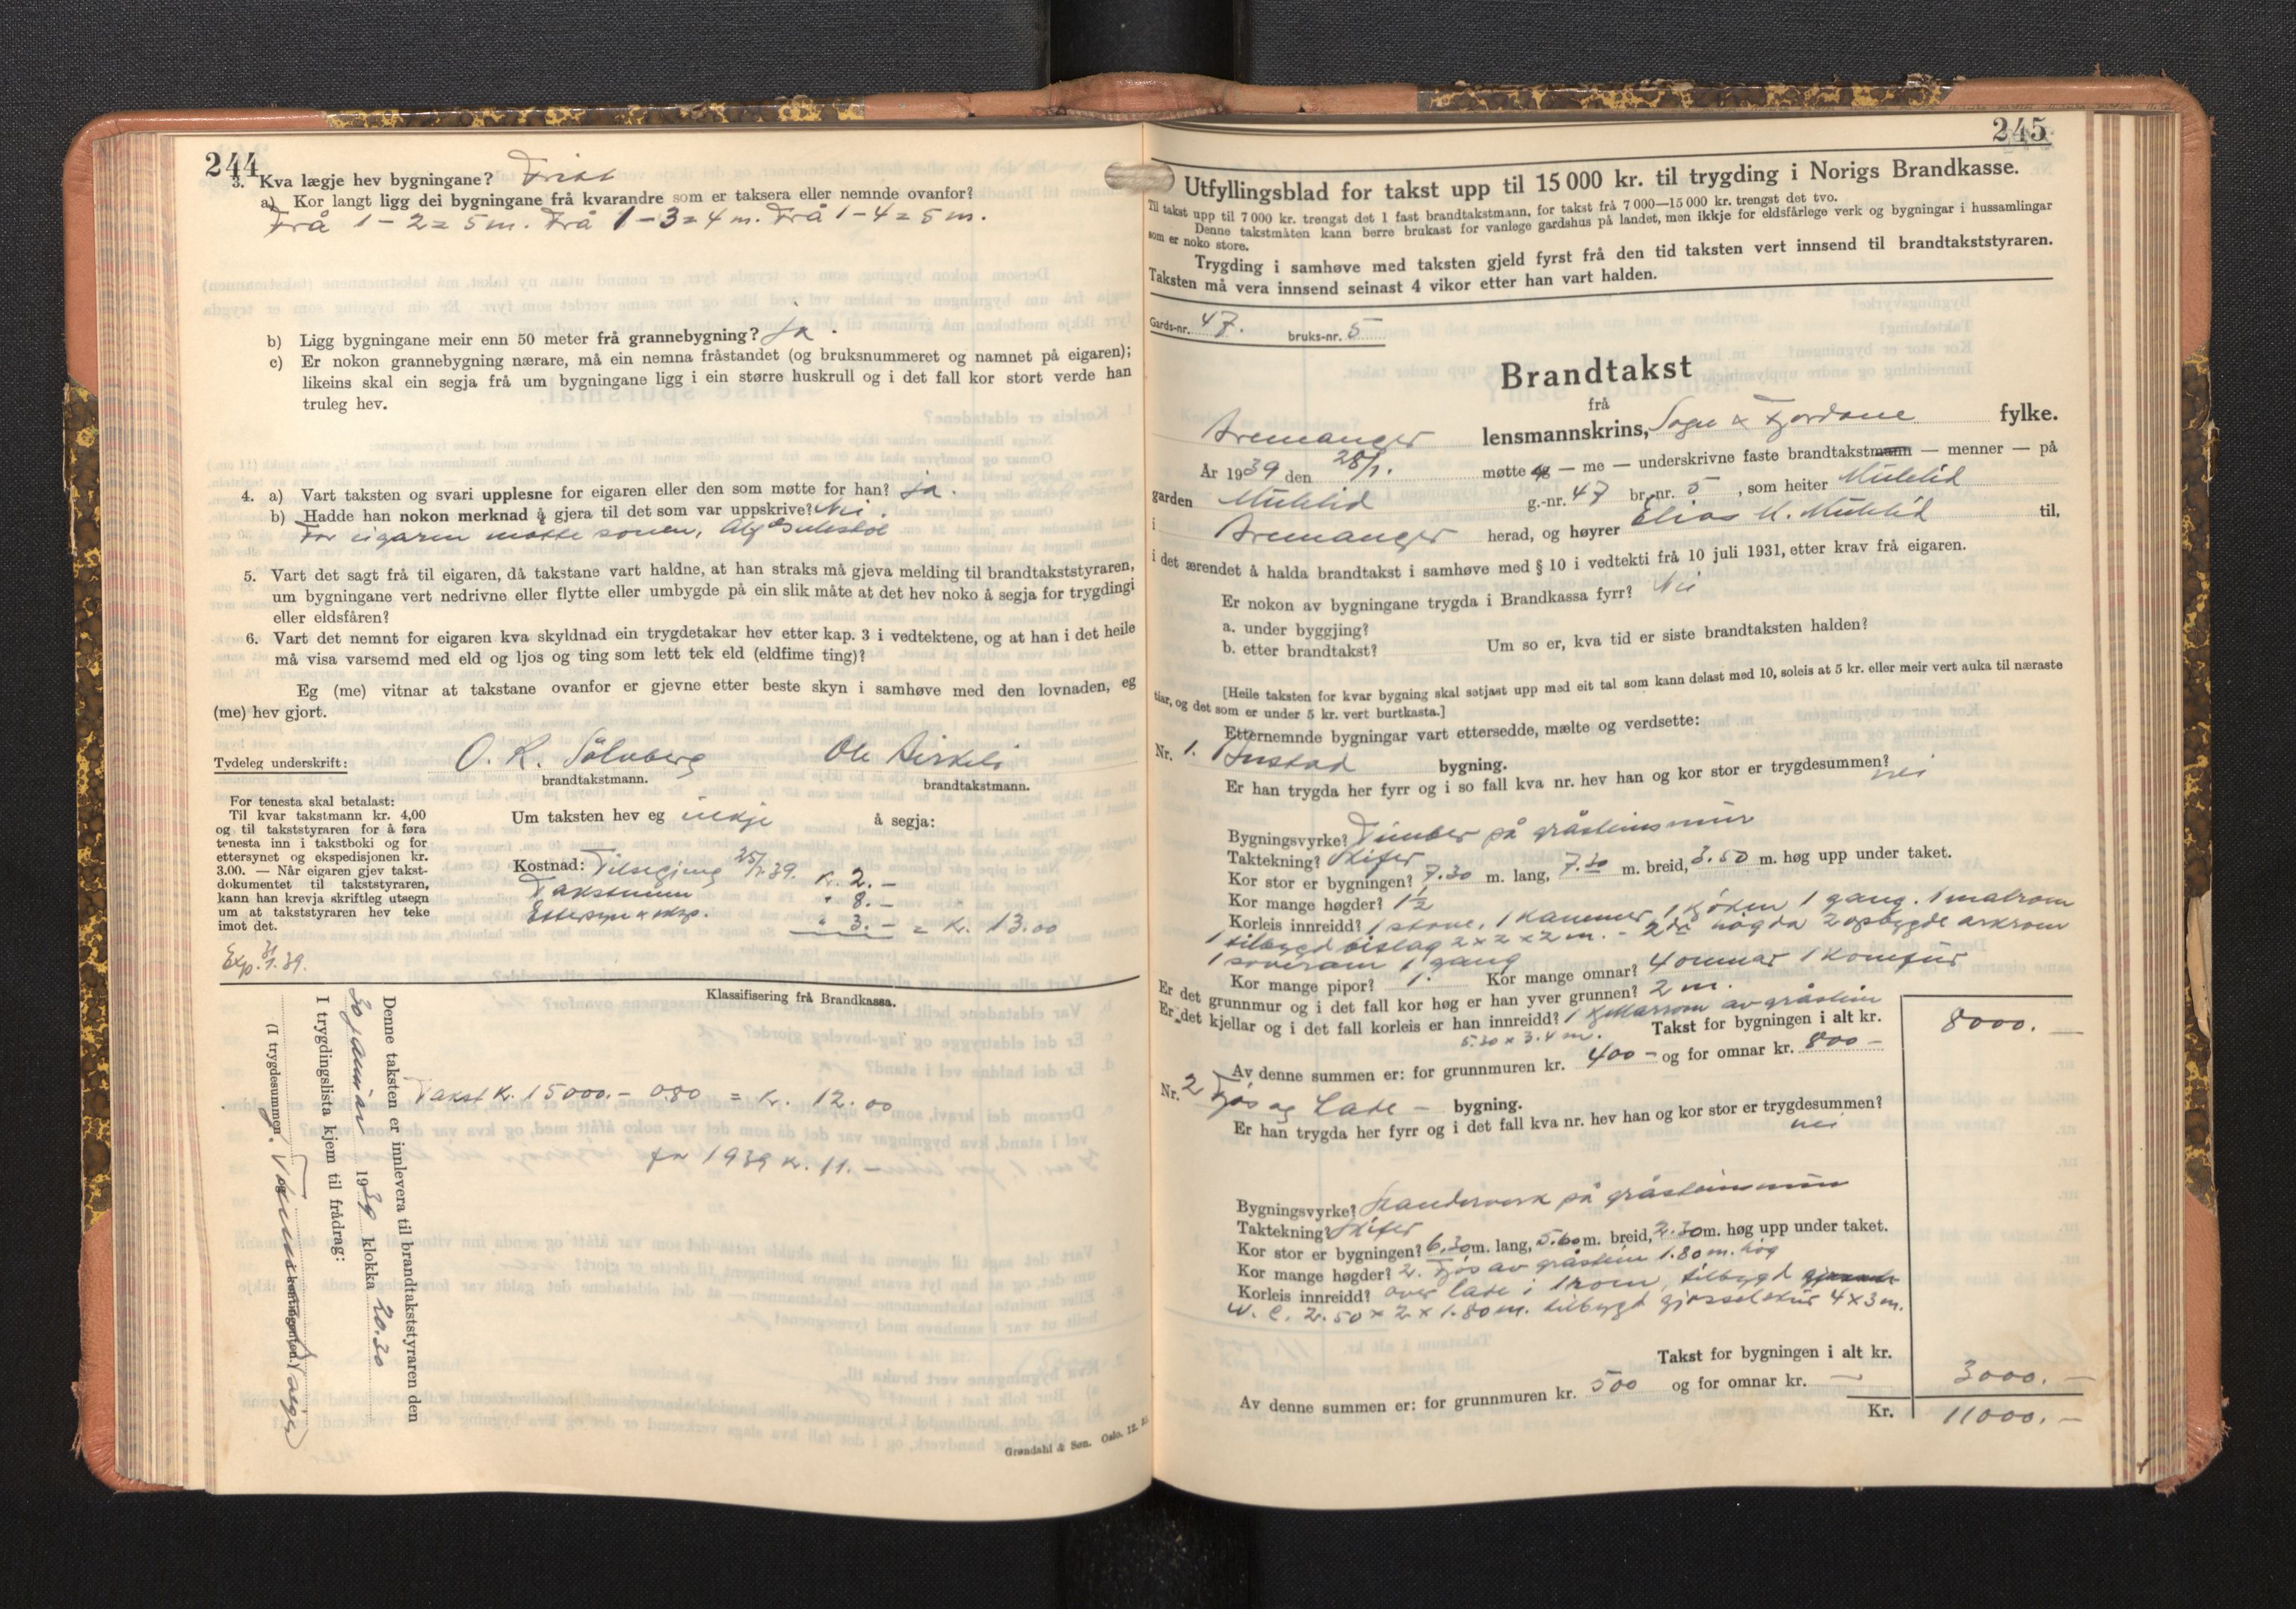 244
3. Kva lægje hev bygningane? Fritt
a) Kor langt ligg dei bygningane frå kvarandre som er taksera eller nemnde ovanfor?
Frå 1 - 2 = 5 m. Frå 1 - 3 = 4 m. Frå 1 - 4 = 5 m.
b) Ligg bygningane meir enn 50 meter frå grannebygning? Ja.
c) Er nokon grannebygning nærare, må ein nemna fråstandet (og bruksnummeret og namnet på eigaren);
likeins skal ein segja frå um bygningane ligg i ein større huskrull og i det fall kor stort verde han
truleg hev.
4. a) Vart taksten og svari upplesne for eigaren eller den som møtte for han? Ja.
b) Hadde han nokon merknad å gjera til det som var uppskrive? Nei.
For eigaren møtte sonen,
5. Vart det sagt frå til eigaren, då takstane vart haldne, at han straks må gjeva melding til brandtakststyraren,
um bygningane vert nedrivne eller flytte eller umbygde på ein slik måte at det hev noko å segja for trygdingi
eller eldsfåren?
6. Vart det nemnt for eigaren kva skyldnad ein trygdetakar hev etter kap. 3 i vedtektene, og at han i det heile
må visa varsemd med eld og ljos og ting som lett tek eld (eldfime ting)?
Eg (me) vitnar at takstane ovanfor er gjevne etter beste skyn i samhøve med den lovnaden, eg
(me) hev gjort.
Tydeleg underskrift: O. R. Sölvberg Ole Birkeli
brandtakstmann. brandtakstmann.
For tenesta skal betalast:
Til kvar takstmann kr. 4,00
og til takststyraren for å føra
tenesta inn i takstboki og for
ettersynet og ekspedisjonen kr.
3.00. — Når eigaren gjev takst-
dokumentet til takststyraren,
kann han krevja skriftleg utsegn
um at takststyraren hev teke
imot det.
Um taksten hev eg inkje å segja:
Kostnad: Tilsegjing 25/1.39. Kr. 2.-
Takstmenn " 8.-
Ettersyn & eksp. " 3.- = Kr. 13.00
Exp. 31/1.39.
Klassifisering frå Brandkassa.
Takst Kr. 15000.- 0.80 = Kr. 12.00
for 1939 Kr. 11.-
Denne taksten er innlevera til brandtakststyraren den
30 januar 1939 klokka 20.30
I trygdingslista kjem til frådrag:
(I trygdesummen og kontingenten.)
Grøndahl & Søn. Oslo. 12.
245
Utfyllingsblad for takst upp til 15 000 kr. til trygding i Norigs Brandkasse.
Til takst upp til 7 000 kr. trengst det 1 fast brandtakstmann, for takst frå 7 000—15 000 kr. trengst det tvo.
Denne takstmåten kann berre brukast for vanlege gardshus på landet, men ikkje for eldsfårlege verk og bygningar i hussamlingar
som er noko store.
Trygding i samhøve med taksten gjeld fyrst frå den tid taksten vert innsend til brandtakststyraren.
Taksten må vera innsend seinast 4 vikor etter han vart halden.
Gards-nr. 47. bruks-nr. 5
Brandtakst
frå
Bremanger lensmannskrins, Sogn & Fjordane fylke.
År 1939 den 28/1. møtte eg — me — underskrivne faste brandtakstmann — menner — på
garden Myklid g.-nr. 47 br.-nr. 5, som heiter Myklid
i Bremanger herad, og høyrer Elias M. Myklid til,
i det ærendet å halda brandtakst i samhøve med § 10 i vedtekti frå 10 juli 1931, etter krav frå eigaren.
Er nokon av bygningane trygda i Brandkassa fyrr? Nei
a. under byggjing?
b. etter brandtakst? Um so er, kva tid er siste brandtaksten halden?
[Heile taksten for kvar bygning skal setjast upp med eit tal som kann delast med 10, soleis at 5 kr. eller meir vert auka til næraste
tiar, og det som er under 5 kr. vert burtkasta.]
Etternemnde bygningar vart ettersedde, mælte og verdsette:
Nr. 1. Bustad bygning.
Er han trygda her fyrr og i so fall kva nr. hev han og kor stor er trygdesummen? nei
Bygningsvyrke? Timber på gråsteinsmur
Taktekning? Skifer
Kor stor er bygningen? 7.30 m. lang, 7.30 m. breid, 3.50 m. høg upp under taket.
Kor mange høgder? 1½
Korleis innreidd? 1 stove, 1 kammer, 1 kjøken 1 gang. 1 matrom
1 tilbygd bislag 2 x 2 x 2 m. - 2dre høgda 2 opbygde arkrom
1 soverom 1 gang
Kor mange pipor? 1. Kor mange omnar? 4 omnar 1 komfyr
Er det grunnmur og i det fall kor høg er han yver grunnen? 2 m.
Er det kjellar og i det fall korleis er han innreidd? 1 kjellarrom av gråstein
5.30 x 3.4 m. Takst for bygningen i alt kr. 8000.—
Av denne summen er: for grunnmuren kr. 400 - og for omnar kr. 800 -
Nr. 2 Fjøs og Løde - bygning.
Er han trygda her fyrr og i det fall kva nr. hev han og kor stor er trygdesummen?
nei
Bygningsvyrke? Standerverk på gråsteinsmur
Taktekning? Skifer
Kor stor er bygningen? 6.30 m. lang, 5.60 m. breid, 2.30 m. høg upp under taket.
Kor mange høgder? 2. Fjøs av gråstein 1.80 m. høg
Korleis innreidd? over løde i 1 rom, tilbygd
W. C. 2.50 x 2 x 1.80 m. tilbygt gjødselskur 4 x 3 m.
Takst for bygningen i alt kr. 3000.—
Av denne summen er: for grunnmuren kr. 500 og for omnar kr. —
Kr. 11000.—